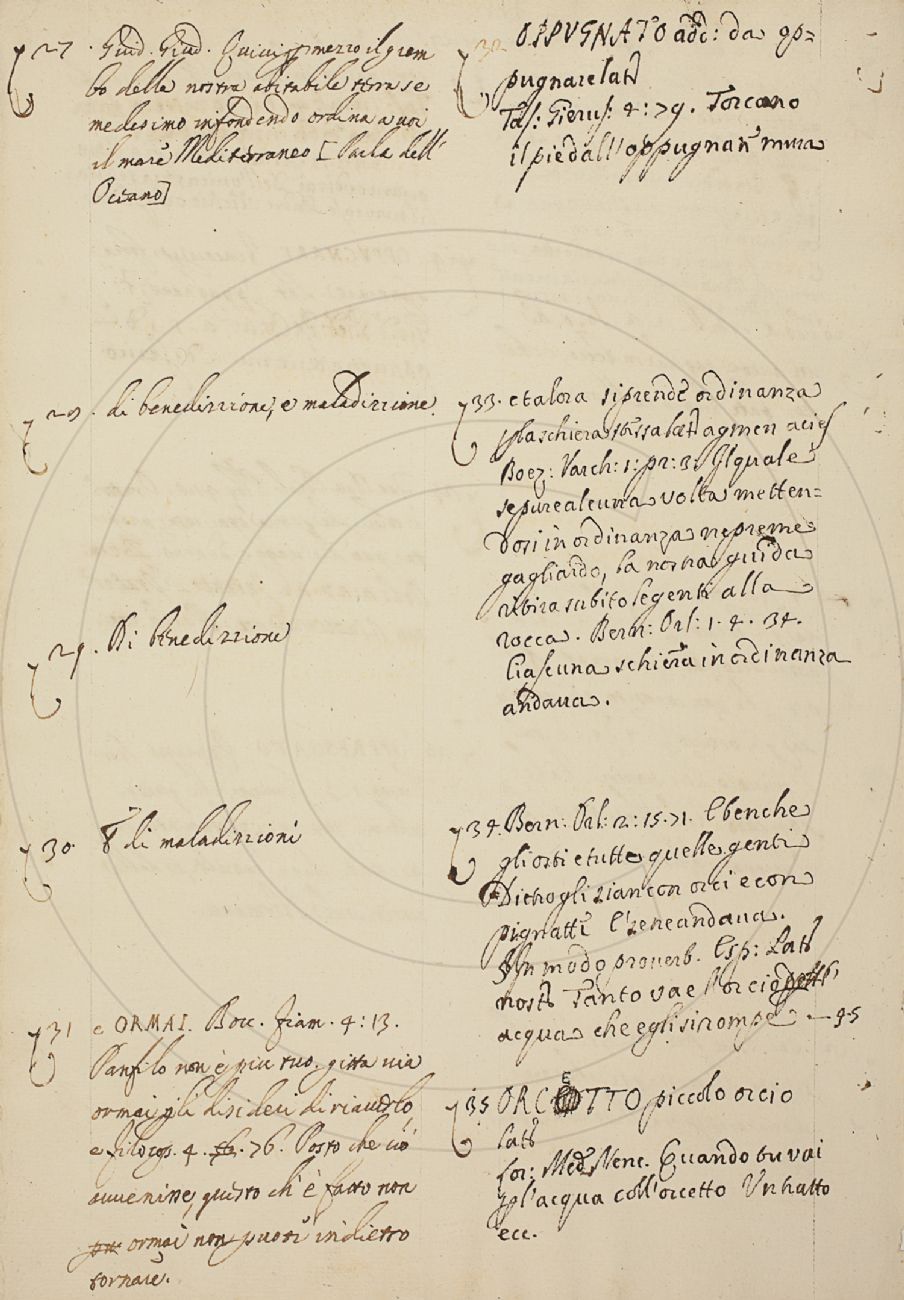 27. Guid. Giud. Quivi p mezzo il grem
bo della nostra abitabile terra se
medesimo infondendo ordina a noi
il mare Mediterraneo [Parla dell'
Oceano]
28. di benedizzione, e maladizzione.
29. Di benedizzione
30. di maladizzioni
31 e ORMAI. Bocc. Fiam. 4: 13.
Panfilo non è più tuo. gitta via
ormai gli disideri di riaverlo
e filoco. 4. 76. Posto che ciò
avvenisse, questo ch'è fatto non
ormai non puoti in dietro
tornare.
32 OPPUGNATO add: da op=
pugnare lat
Tas: Gierus: 4: 79. Torcano
il piè dall'oppugnat mura
33. e talora si prende ordinanza
p la schiera stessa lat agmen acies
Boez: Varch: 1: pr: 3. Il quale
se pure alcuna volta metten=
dosi in ordinanza ne preme
gagliardo, la nostra guida
ritira subito le genti alla
rocca. Bern: Orl: 1. 4. 34.
Ciascuna schiera in ordinanza
andava.
34. Bern: Orl: 2: 15. 71. E benche
gli osti e tutte quelle genti
Dietro gli sian con orci e con
pignatte E' se ne andava.
In modo proverb. Esp: Lat
nost Tanto va l'orcio p
acqua che egli si rompe — 35
35 ORCETTO piccolo orcio
lat
Lor: Med Nenc. Quando tu vai
p l'acqua coll'orcetto Un hatto
ecc.